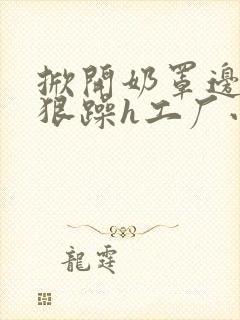 掀開奶罩邊
狠躁h工厂
龍霆